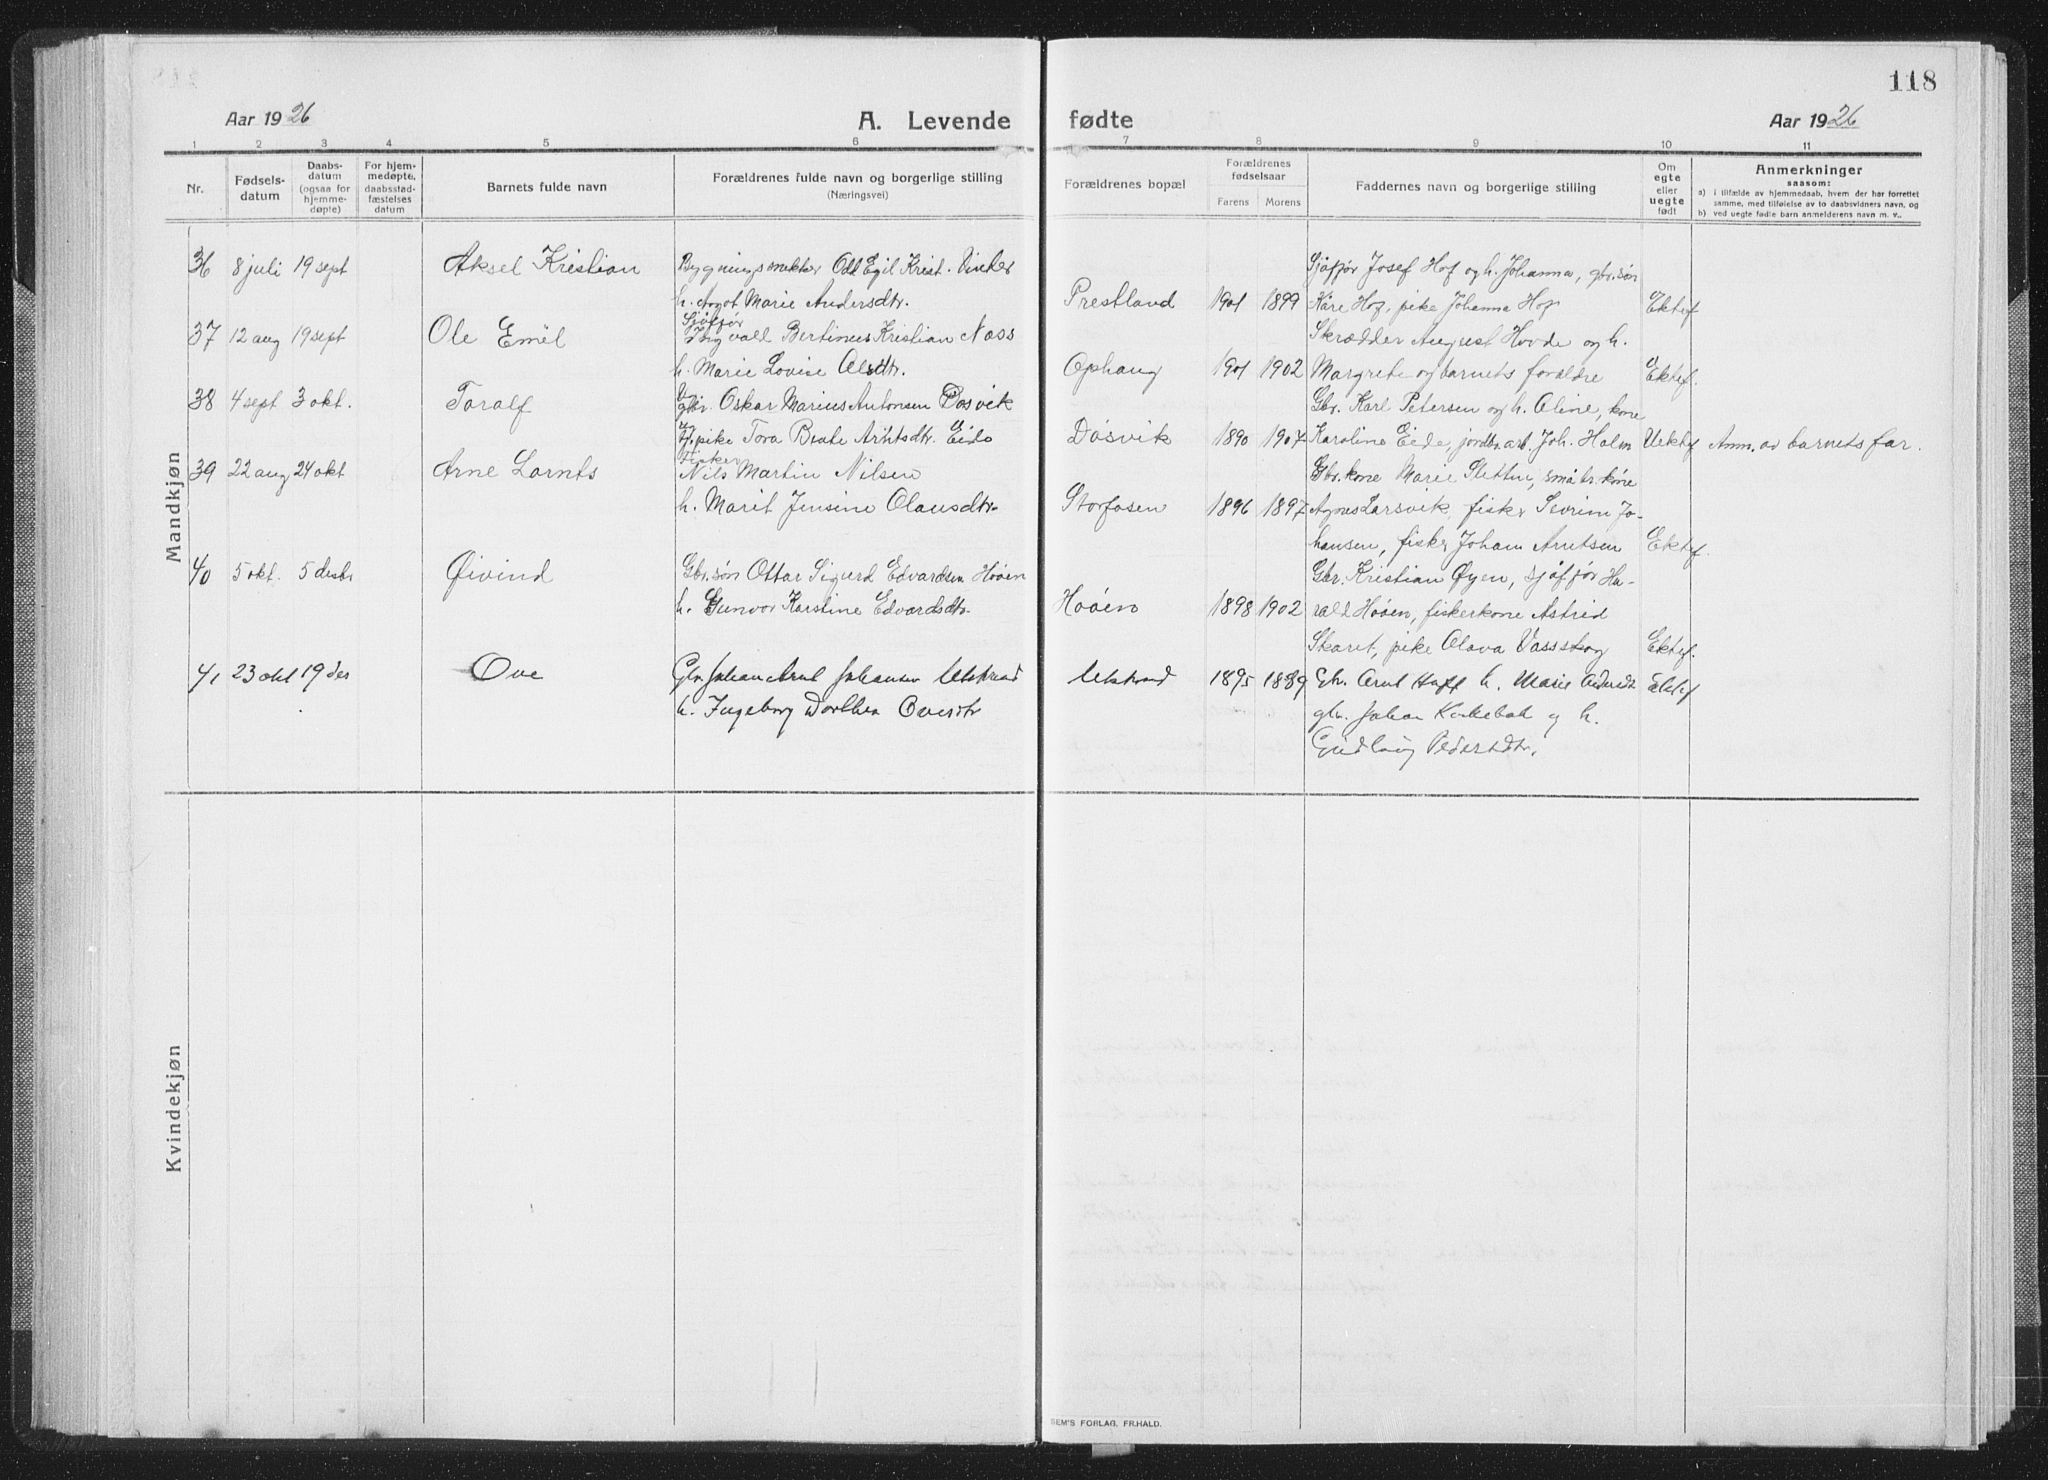 118
Aar 1926
A. Levende fødte
Aar 1926
1 2 3 4 5 6 7 8 9 10 11
Nr.
Fødsels-
datum
Daabs-
datum
(ogsaa for
hjemme-
døpte)
For hjem-
medøpte,
daabsstad-
fæstelses
datum
Barnets fulde navn
Forældrenes fulde navn og borgerlige stilling
(Næringsvei)
Forældrenes bopæl
Forældrenes
fødselsaar
Farens Morens
Faddernes navn og borgerlige stilling
Om
egte
eller
uegte
født
Anmerkninger
saasom:
a) i tilfælde av hjemmedaab, hvem der har forrettet
samme, med tilføielse av to daabsvidners navn, og
b) ved uegte fødte barn anmelderens navn m. v.,
Mandkjøn
36 8 juli 19 sept Aksel Kristian
Odd Egil Krist.
h. Marie Andersdtr.
Prestland 1901 1899
Sjåfjør Josef Hof og h. Johanna, gbr.søn
Kåre Hof, pike Johanna Hof
Ektef
37 12 aug 19 sept Ole Emil
Sjåfjør
Ingvald Bertinus Kristian Næss
h. Marie Lovise Olsdtr.
Ophaug 1901 1902
Skrædder August Hovde og h.
Margrete og barnets forældre
Ektef.
38 4 sept 3 okt. Toralf
gbr. Oskar Marius Antonsen Døsvik
Tj.pike Tora Beate Arntsdtr. Eide
Døsvik 1890 1907
Gbr. Karl Petersen og h. Oline, kone
Karoline Eide, jordbr.arb. Joh. Holm
Uektef Anm. av barnets far.
39 22 aug 24 okt Arne Lornts
Fisker
Nils Martin Nilsen
h. Marit Jensine Olausdtr.
Storfosen 1896 1897
Gbr.kone Marie Sletten, småbr.kone
Agnes Larsvik, fisker Severin Jo-
hansen, fisker Johan Arntsen
Ektef.
40 5 okt. 5 desbr Øivind
Gbr.søn Ottar Sigurd Edvardsen Hoøen
h. Gunvor Karstine Edvardsdtr.
Hoøen 1898 1902
Gbr. Kristian Øyen, sjåfjør Ha-
rald Hoøen, fiskerkone Astrid
Skaret, pike Olava Vassskog
Ektef.
41 23 okt 19 des Ove
Gbr. Johan Arnt Johansen Uthstrand
h. Ingeborg Dorthea Ovesdtr
Uthstrand 1895 1889
Gbr. Arnt Hoff h. Marie
gbr. Johan og h.
Pedersdtr.
Ektef
Kvindekjøn
SEM'S FORLAG, FR.HALD.